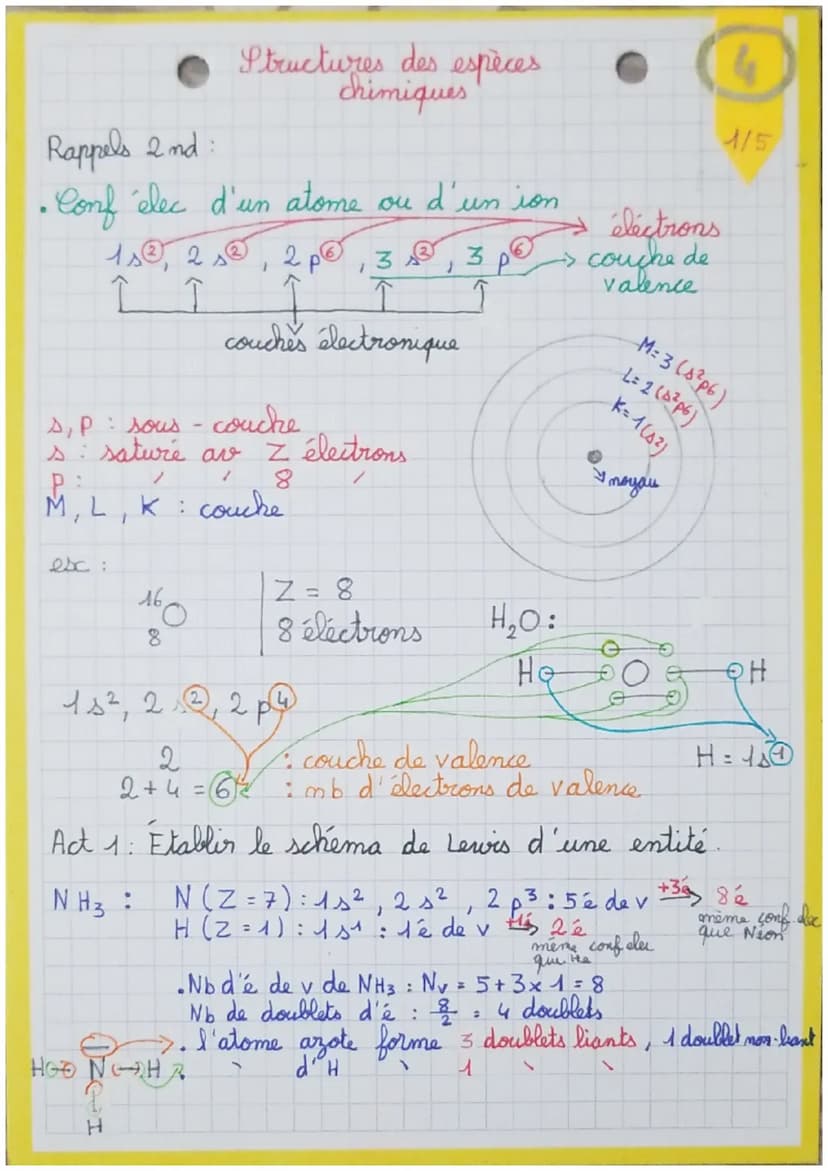 Structures des espèces
chimiques
4
1/5
Rappels 2nd :
. Conf élec d'un atome ou d'un ion
1s², 2s², 2p⁶, 3s², 3p⁶
éléctrons
couche de
valence
couches électronique
M=3 (s²p6)
L=2 (s²p6)
K=1 (s²)
noyau
s, p : sous-couche
s : saturé av 2 électrons
p : ' ' 8 '
M, L, K : couche
ex :
16
8 O
Z = 8
8 éléctrons
H₂O :
H O H
1s², 2s², 2p⁴
H = 1s¹
2 : couche de valence
2+4 = 6 : nb d'électrons de valence
Act 1 : Établir le schéma de Lewis d'une entité.
NH3 : N (Z=7) : 1s², 2s², 2p³ : 5é de v +3é 8é
même conf elec
que Néon
H (Z=1) : 1s¹ : 1é de v +1é 2é
même conf elec
que He
. Nb d'é de v de NH3 : Nv = 5+3x1 = 8
Nb de doublets d'é : 8/2 = 4 doublets
. l'atome azote forme 3 doublets liants, 1 doublet non-liant
. ' d'H ' 1 ' '
H N H
H